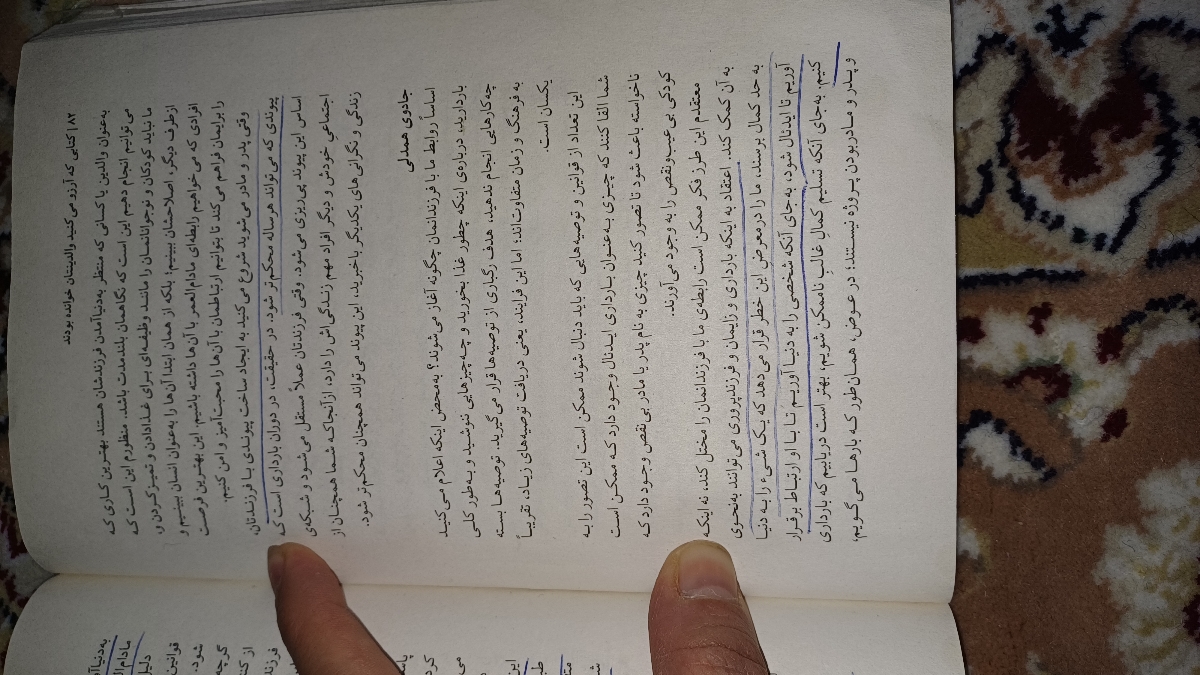 ۸۲ | کتابی که آرزو می‌کنید والدینتان خوانده بودند
به‌عنوان والدین یا کسانی که منتظر به‌دنیاآمدن فرزندشان هستند بهترین کاری که
می‌توانیم انجام دهیم این است که نگاهمان بلندمدت باشد. منظورم این است که
ما نباید کودکان و نوجوانانمان را مانند وظیفه‌ای برای غذادادن و تمیزکردن، و
ازطرف دیگر، اصلاحشان ببینیم؛ بلکه از همان ابتدا آن‌ها را به‌عنوان انسان ببینیم و
افرادی که می‌خواهیم رابطه‌ای مادام‌العمر با آن‌ها داشته باشیم. این بهترین فرصت
را برایمان فراهم می‌کند تا بتوانیم ارتباطمان با آن‌ها را محبت‌آمیز و امن کنیم.
وقتی پدر و مادر می‌شوید شروع می‌کنید به ایجاد ساخت پیوندی با فرزندتان،
پیوندی که می‌تواند هرساله محکم‌تر شود. در حقیقت، در دوران بارداری است که
اساس این پیوند پی‌ریزی می‌شود. وقتی فرزندتان عملاً مستقل می‌شود و شبکه‌ی
اجتماعیِ خودش و دیگر افراد مهم زندگی‌اش را دارد، ازآنجاکه شما همچنان از
زندگی و نگرانی‌های یکدیگر باخبرید، این پیوند می‌تواند همچنان محکم‌تر شود.
جادوی همدلی
اساساً روابط ما با فرزندانمان چگونه آغاز می‌شوند؟ به‌محض اینکه اعلام می‌کنید
باردارید، درباره‌ی اینکه چطور غذا بخورید و چه‌چیزهایی ننوشید و به‌طور کلی
چه‌کارهایی انجام ندهید، هدف رگباری از توصیه‌ها قرار می‌گیرید. توصیه‌ها بسته
به فرهنگ و زمان متفاوت‌اند؛ اما این فرایند، یعنی دریافت توصیه‌های زیاد، تقریباً
یکسان است.
این تعداد از قوانین و توصیه‌هایی که باید دنبال شوند ممکن است این تصور را به
شما القا کنند که چیزی به‌عنوان بارداری ایدئال وجود دارد که ممکن است
ناخواسته باعث شود تا تصور کنید چیزی به نام پدر یا مادر بی‌نقص وجود دارد که
کودکی بی‌عیب‌ونقص را به وجود می‌آورند.
معتقدم این طرز فکر ممکن است رابطه‌ی ما با فرزندانمان را مختل کند، نه اینکه
به آن کمک کند. اعتقاد به اینکه بارداری و زایمان و فرزندپروری می‌توانند به‌نحوی
به حد کمال برسند، ما را در معرض این خطر قرار می‌دهد که یک شیء را به دنیا
آوریم تا ایدئال شود، به‌جای آنکه شخصی را به دنیا آوریم تا با او ارتباط برقرار
کنیم. به‌جای آنکه تسلیم کمالِ غالبِ ناممکن شویم، بهتر است دریابیم که بارداری
و پدر و مادر بودن پروژه نیستند؛ در عوض، همان‌طور که بارها می‌گویم،